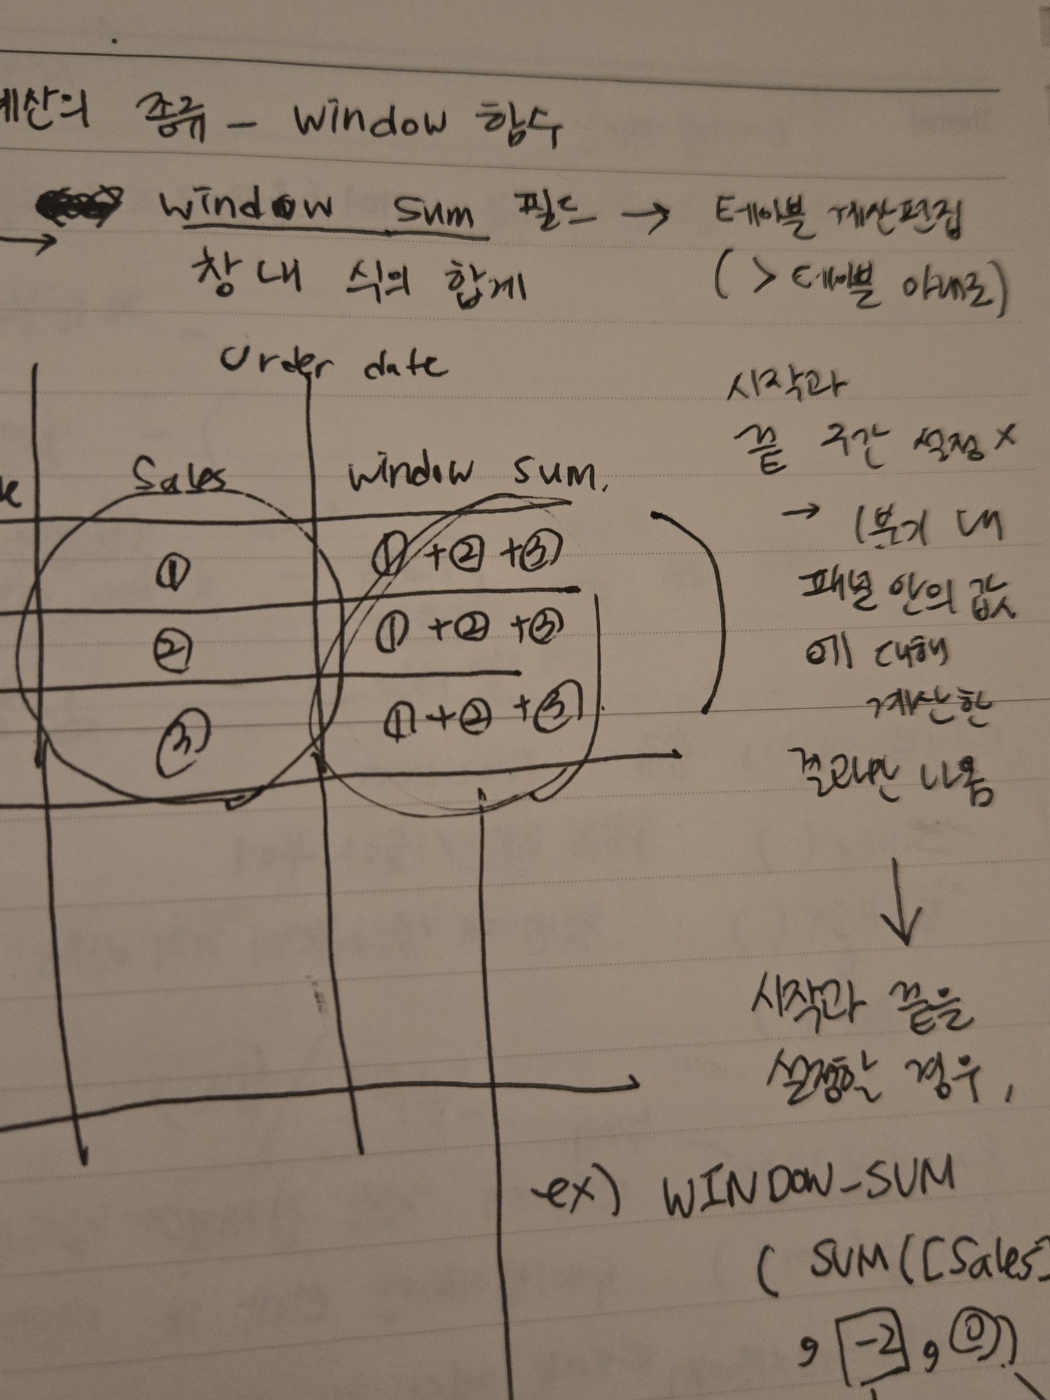 계산의 종류 - window 함수
window sum 필드 → 테이블 계산편집
→ 창 내 식의 합계 (> 테이블 아래로)
order date
Sales window sum.
① ①+②+③
② ①+②+③
③ ①+②+③
시작과
끝 구간 설정 x
→ 1분기 내
패널 안의 값
에 대해
계산한
결과만 나옴
↓
시작과 끝을
설정할 경우,
ex) WINDOW_SUM
( SUM([Sales]
, -2, 0))